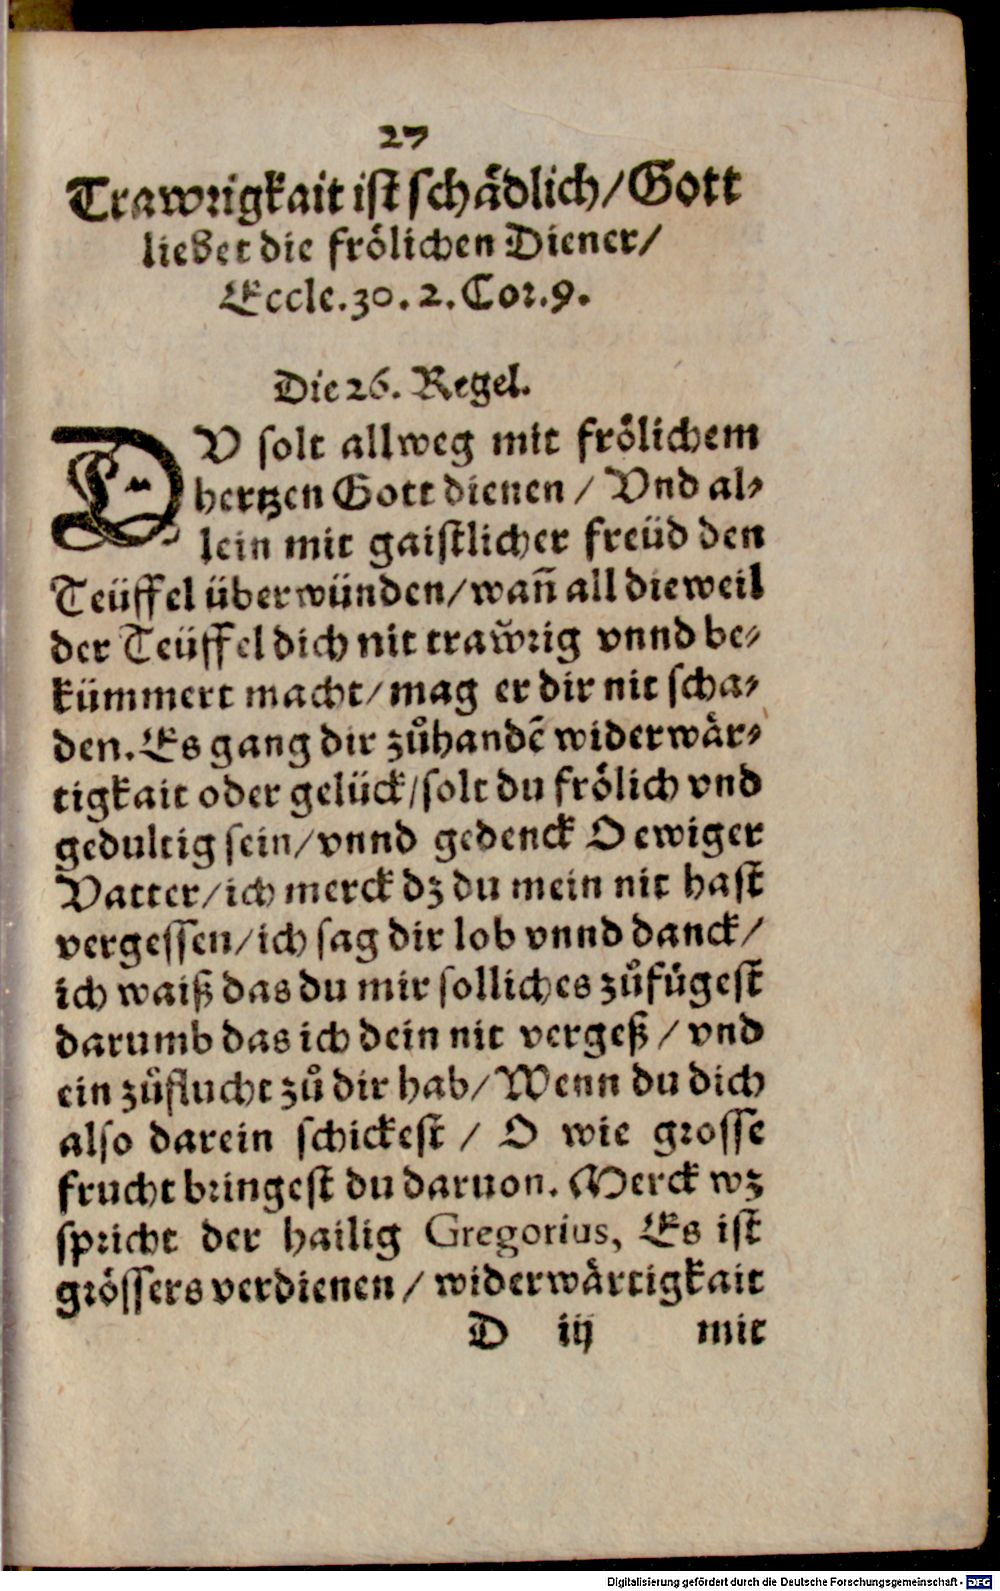 27
Trawrigkait ist schådlich/Gott
liebet die frôlichen Diener/
Eccle.30.2.Cor.9.
Die 26. Regel.
DV solt allweg mit frôlichem
hertzen Gott dienen / Vnd al-
lein mit gaistlicher freüd den
Teüffel überwünden/wañ all dieweil
der Teüffel dich nit traw̌rig vnnd be-
kümmert macht/mag er dir nit scha-
den. Es gang dir zůhandẽ widerwår-
tigkait oder gelück/solt du frôlich vnd
gedultig sein/vnnd gedenck O ewiger
Vatter/ich merck dz du mein nit hast
vergessen/ich sag dir lob vnnd danck/
ich waiß das du mir solliches zůfügest
darumb das ich dein nit vergeß / vnd
ein zůflucht zů dir hab/Wenn du dich
also darein schickest / O wie grosse
frucht bringest du daruon. Merck wz
spricht der hailig Gregorius, Es ist
grössers verdienen / widerwårtigkait
D iij mit
Digitalisierung gefördert durch die Deutsche Forschungsgemeinschaft - DFG